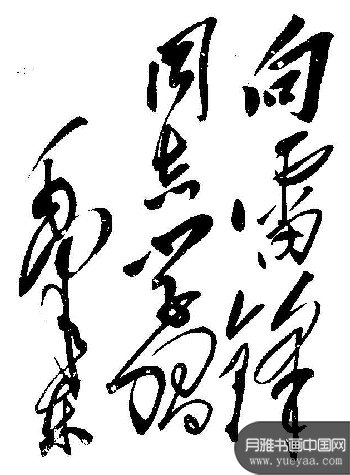 向雷锋
同志学习
毛泽东
月雅书画中国网
www.yueyaa.com